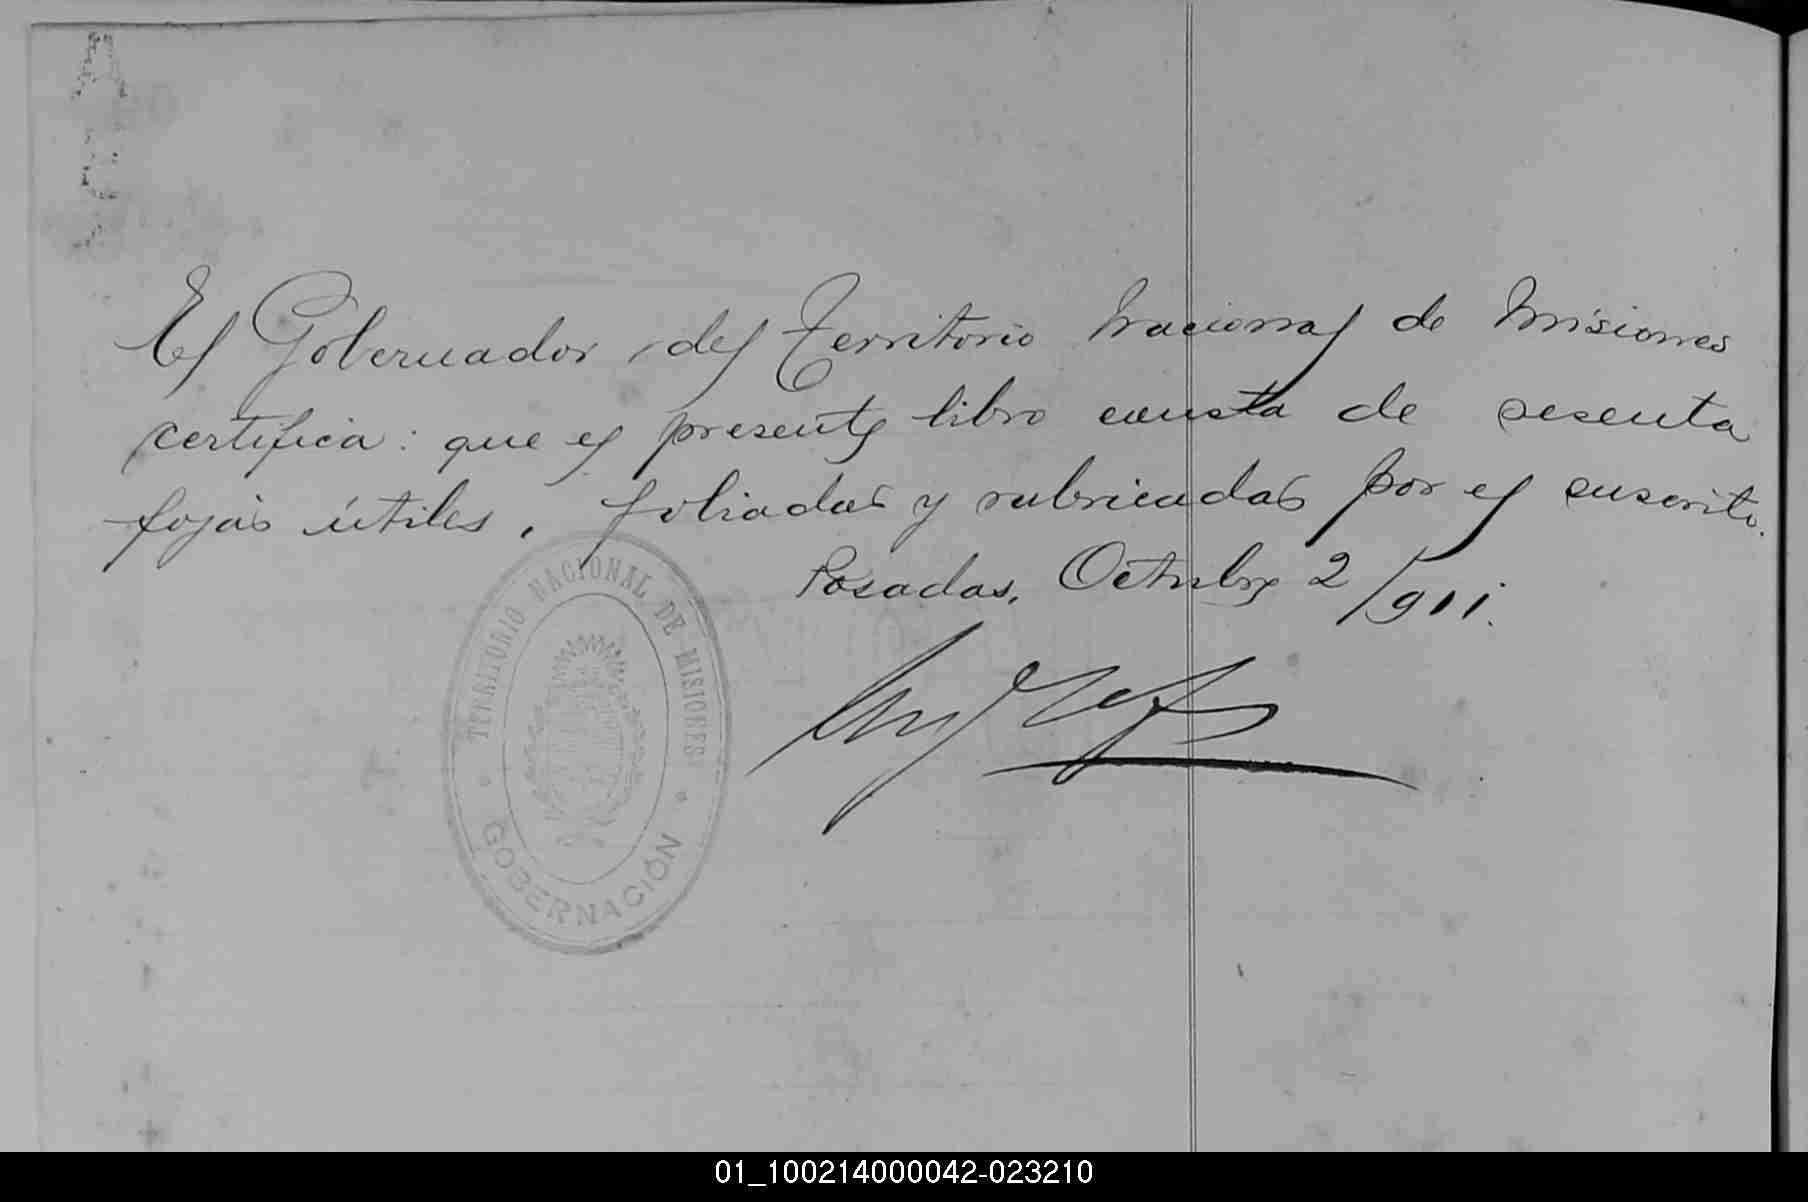 El Gobernador del Territorio Nacional de Misiones
certifica: que el presente libro consta de sesenta
fojas útiles, foliadas y rubricadas por el suscrito.
Posadas, Octubre 2/911.
TERRITORIO NACIONAL DE MISIONES
GOBERNACIÓN
01_100214000042-023210